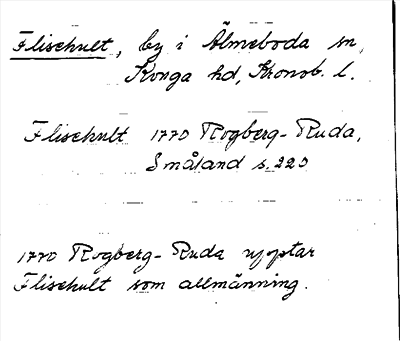 Flisehult, by i Älmeboda sn,
Konga hd, Kronob. l.
Flisehult 1770 Rogberg-Ruda,
Småland s. 220
1770 Rogberg-Ruda upptar
Flisehult som allmänning.